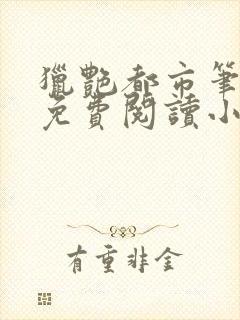 獵艷都市筆
免費閱讀小
有重非金